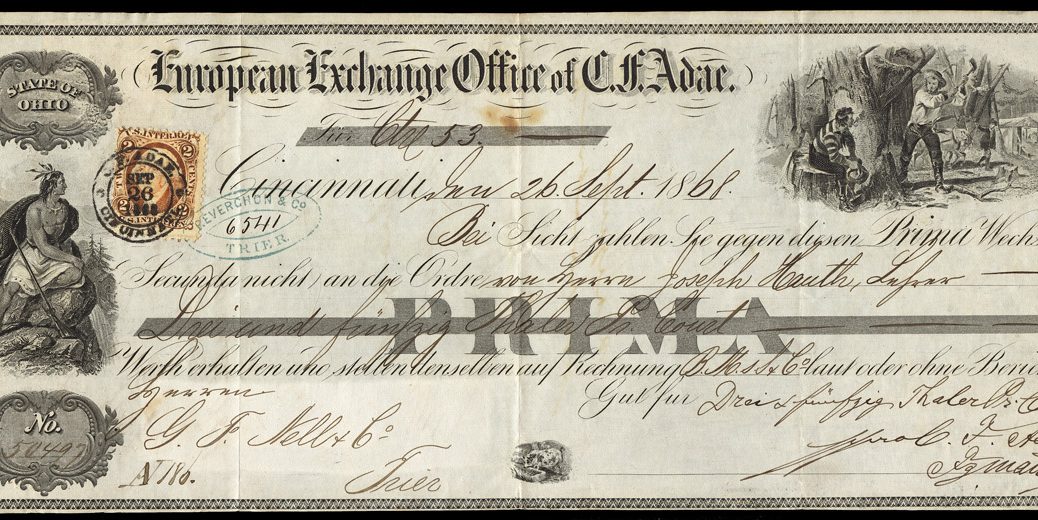 STATE OF
OHIO
European Exchange Office of C.F. Adae.
Für
53
U.S. INTER.
2
2
CENTS
C.F. ADAE
SEP
26
1868
CINCINNATI
REVERCHON & Co
6541
TRIER.
Cincinnati, den 26 Sept. 1868.
Bei Sicht zahlen Sie gegen diesen Prima Wechs
Secunda nicht) an die Ordre von Herrn Joseph Hauth, Lehrer
PRIMA
Drei und fünfzig Thaler Pr. Court
Werth erhalten und stellen denselben auf Rechnung laut oder ohne Beri
Herren
G. F. Nell & Co
Trier
Gut für Drei & fünfzig Thaler Pr. C
No.
N 180.
pro C. F. A